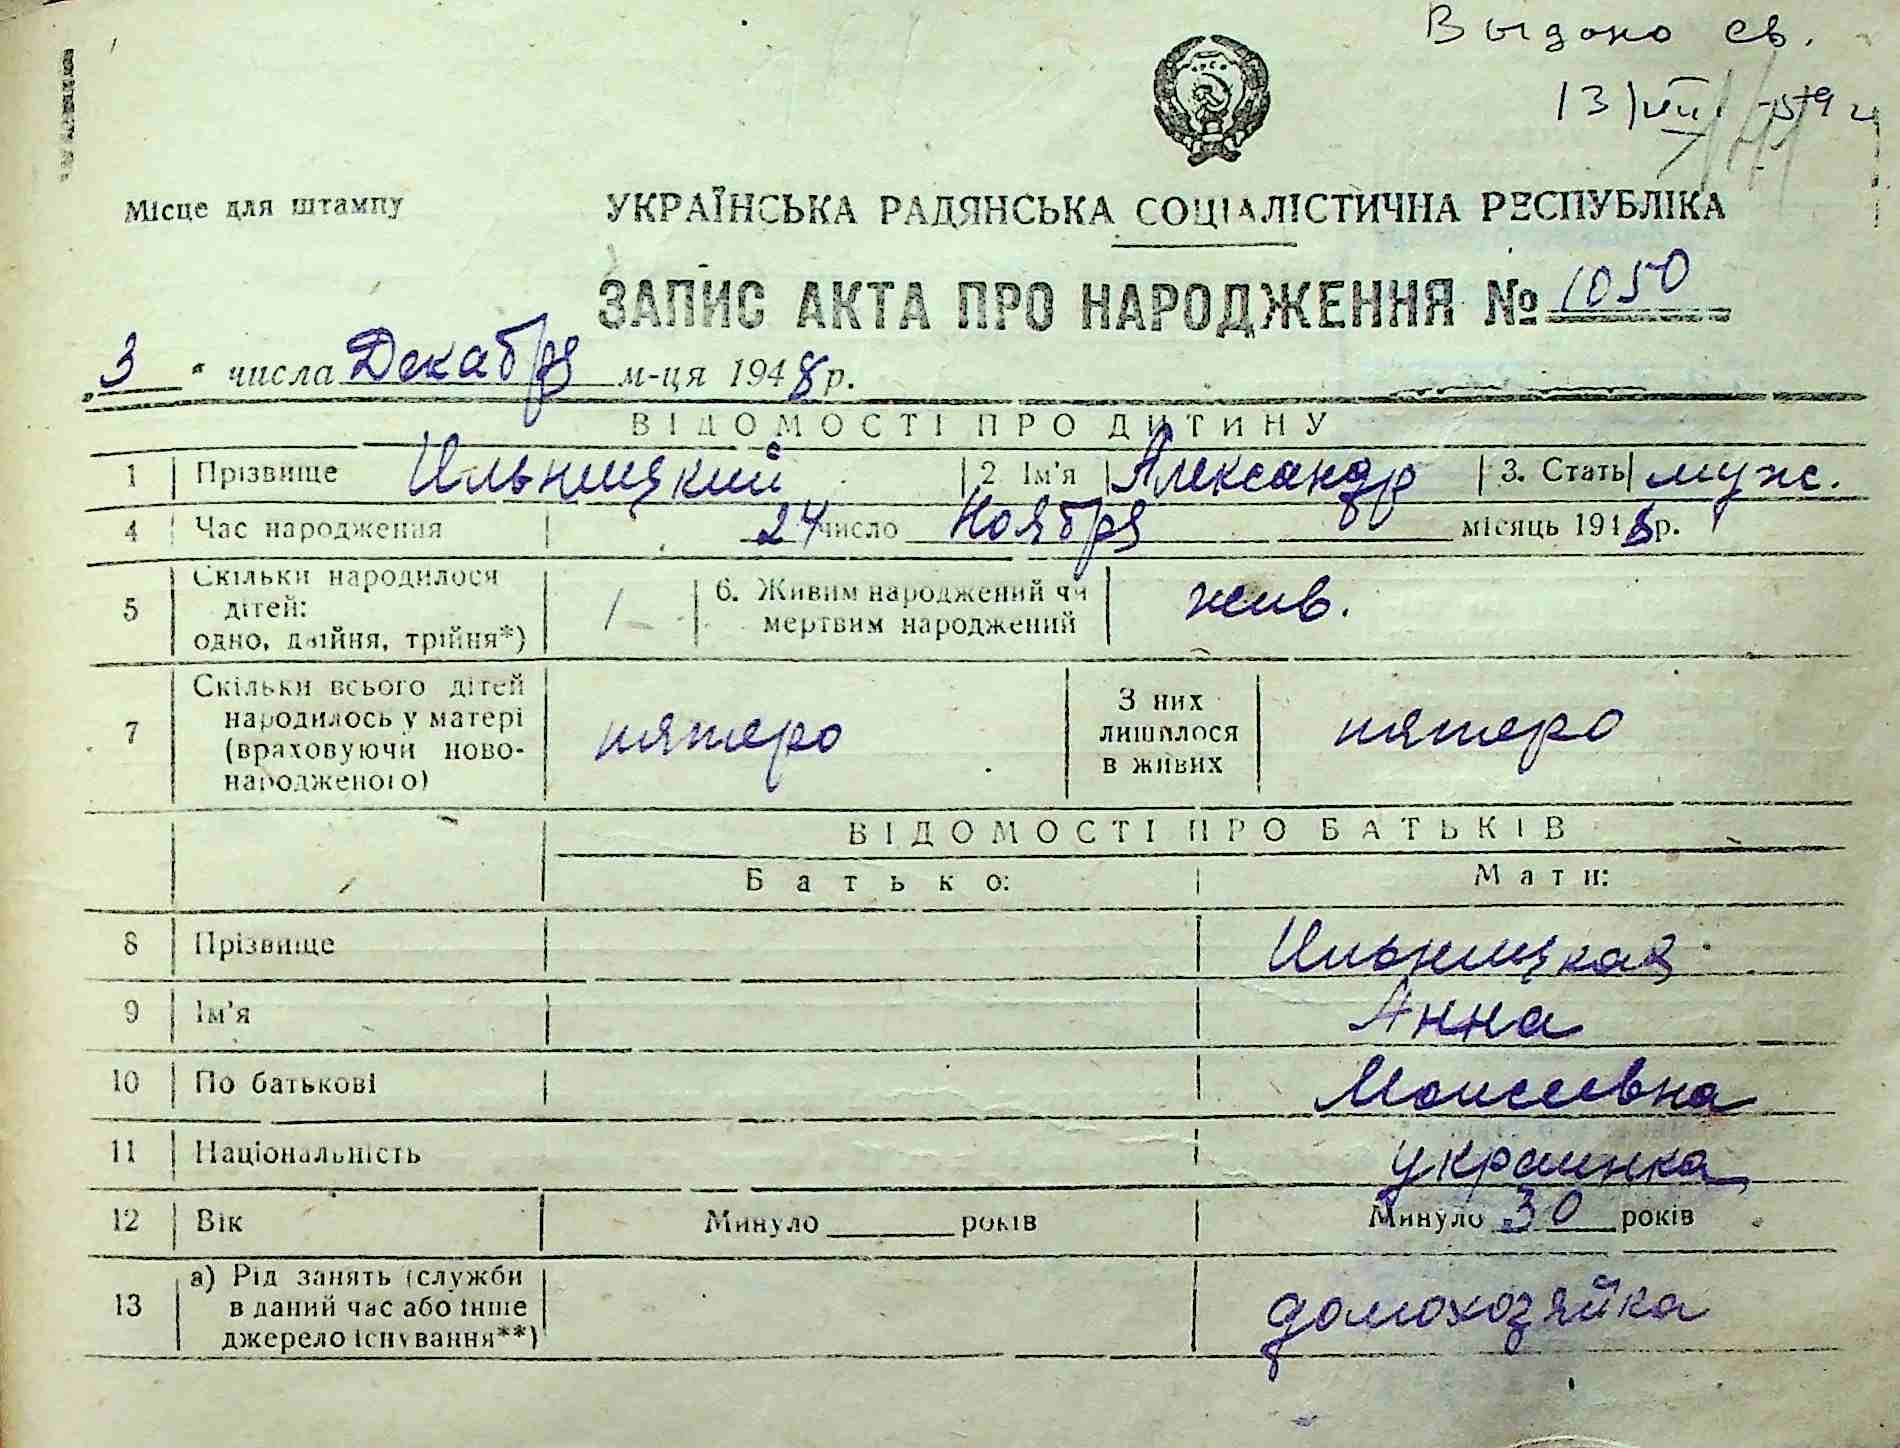 Выдано св.
13/VIII
Місце для штампу
УКРАЇНСЬКА РАДЯНСЬКА СОЦІАЛІСТИЧНА РЕСПУБЛІКА
ЗАПИС АКТА ПРО НАРОДЖЕННЯ № 1050
„3“ числа Декабря м-ця 1948 р.
ВІДОМОСТІ ПРО ДИТИНУ
1 Прізвище Ильницкий 2 Ім'я Александр 3. Стать муж.
4 Час народження 24 число Ноября місяць 1948 р.
5 Скільки народилося дітей: одно, двійня, трійня*) 1 6. Живим народжений чи мертвим народжений жив.
7 Скільки всього дітей народилось у матері (враховуючи новонародженого) пятеро З них лишилося в живих пятеро
ВІДОМОСТІ ПРО БАТЬКІВ
Батько: Мати:
8 Прізвище Ильницкая
9 Ім'я Анна
10 По батькові Моисеевна
11 Національність украинка
12 Вік Минуло ______ років Минуло 30 років
13 а) Рід занять (служби в даний час або інше джерело існування**) домохозяйка